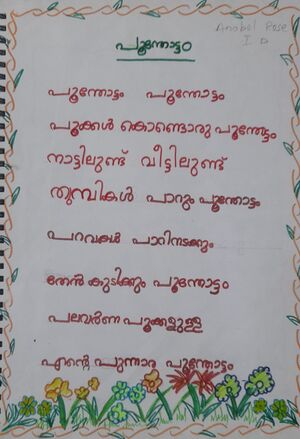 Anabel Rose
I D
പൂന്തോട്ടം
പൂന്തോട്ടം പൂന്തോട്ടം
പൂക്കൾ കൊണ്ടൊരു പൂന്തോട്ടം
നാട്ടിലുണ്ട് വീട്ടിലുണ്ട്
തുമ്പികൾ പാറും പൂന്തോട്ടം
പറവകൾ പാറിനടക്കും
തേൻ കുടിക്കും പൂന്തോട്ടം
പലവർണ പൂക്കളുള്ള
എന്റെ പുന്നാര പൂന്തോട്ടം